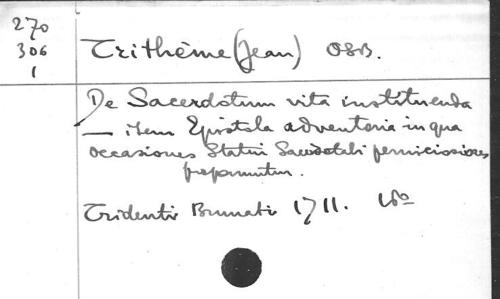 270
306
1
Trithème (Jean) OSB.
De Sacerdotum vita instituenda
— item Epistola adventoria in qua
occasiones Statui Sacerdotali perniciosiores
proponuntur.
Tridenti Brunati 1711. 16°